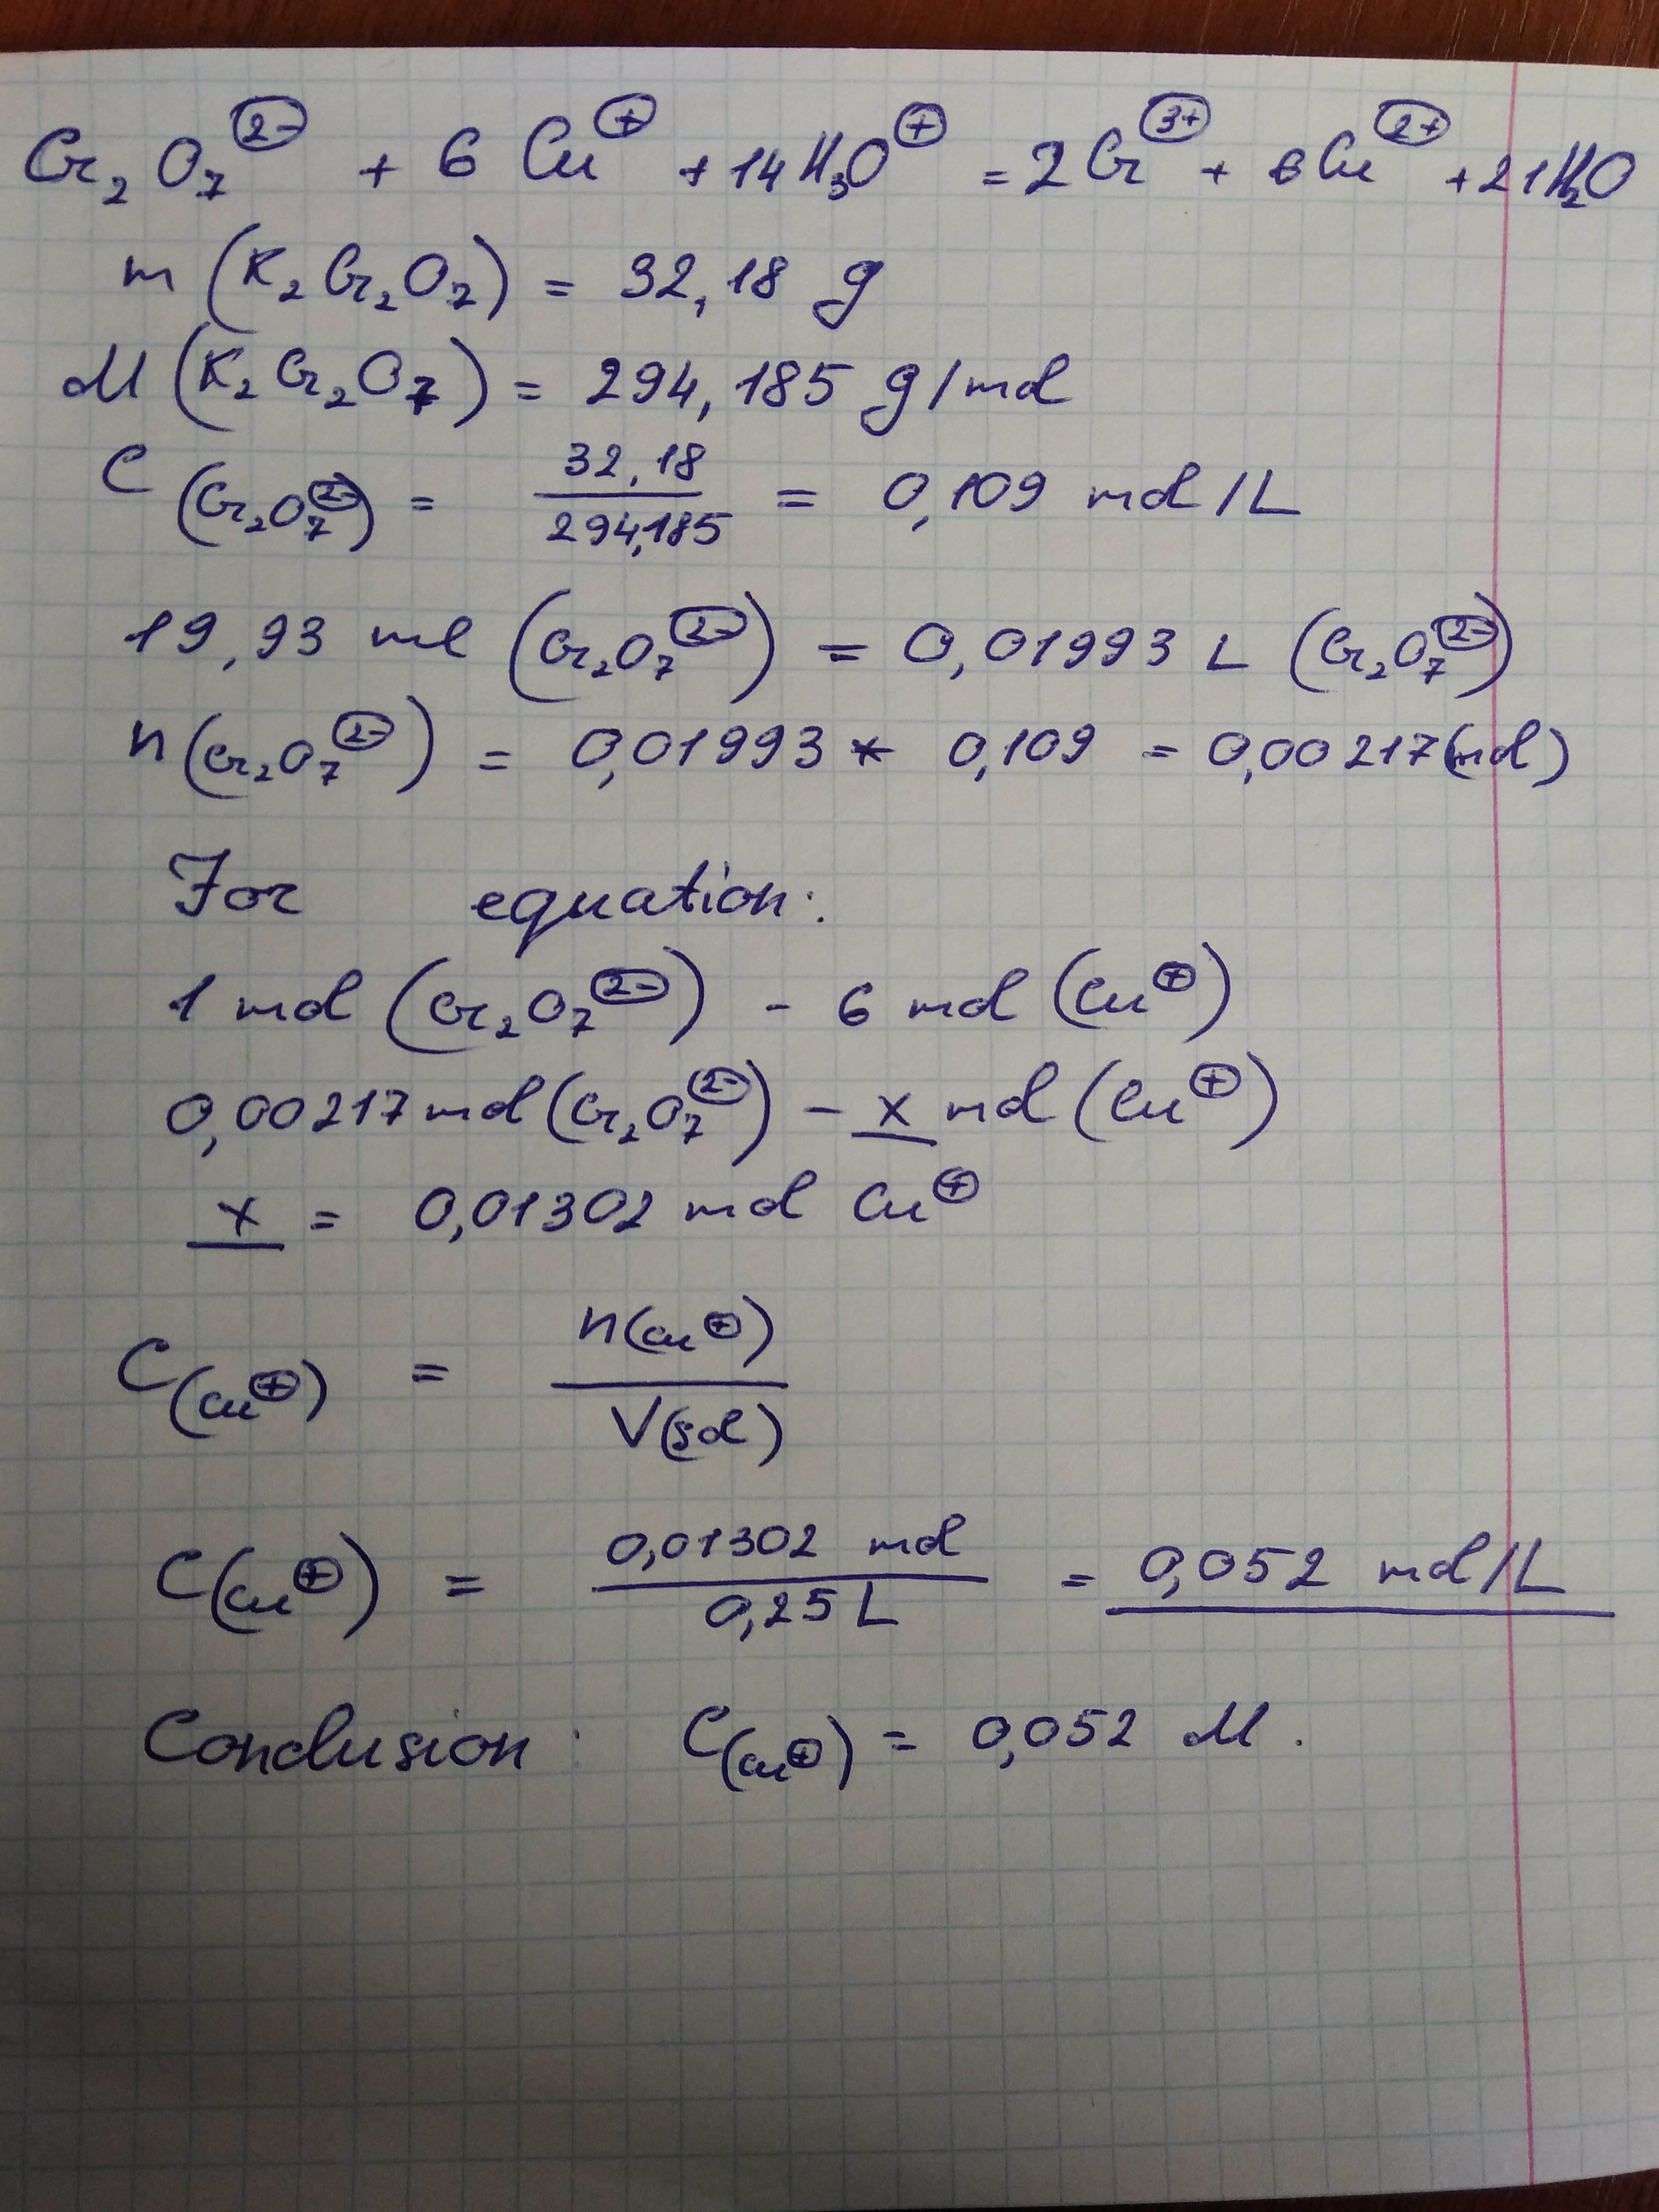 Cr₂O₇²⁻ + 6 Cu⁺ + 14 H₃O⁺ = 2 Cr³⁺ + 6 Cu²⁺ + 21 H₂O
m (K₂Cr₂O₇) = 32,18 g
M (K₂Cr₂O₇) = 294,185 g/mol
C (Cr₂O₇²⁻) = 32,18 / 294,185 = 0,109 mol/L
19,93 ml (Cr₂O₇²⁻) = 0,01993 L (Cr₂O₇²⁻)
n (Cr₂O₇²⁻) = 0,01993 * 0,109 = 0,00217 (mol)
For equation:
1 mol (Cr₂O₇²⁻) - 6 mol (Cu⁺)
0,00217 mol (Cr₂O₇²⁻) - x mol (Cu⁺)
x = 0,01302 mol Cu⁺
C (Cu⁺) = n(Cu⁺) / V(sol)
C (Cu⁺) = 0,01302 mol / 0,25 L = 0,052 mol/L
Conclusion: C (Cu⁺) = 0,052 M.